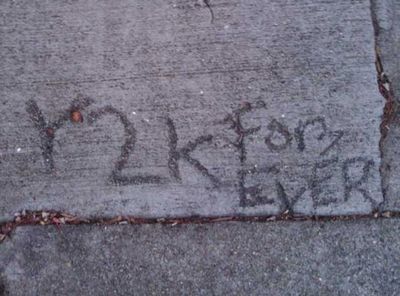 Y2K For
EVER